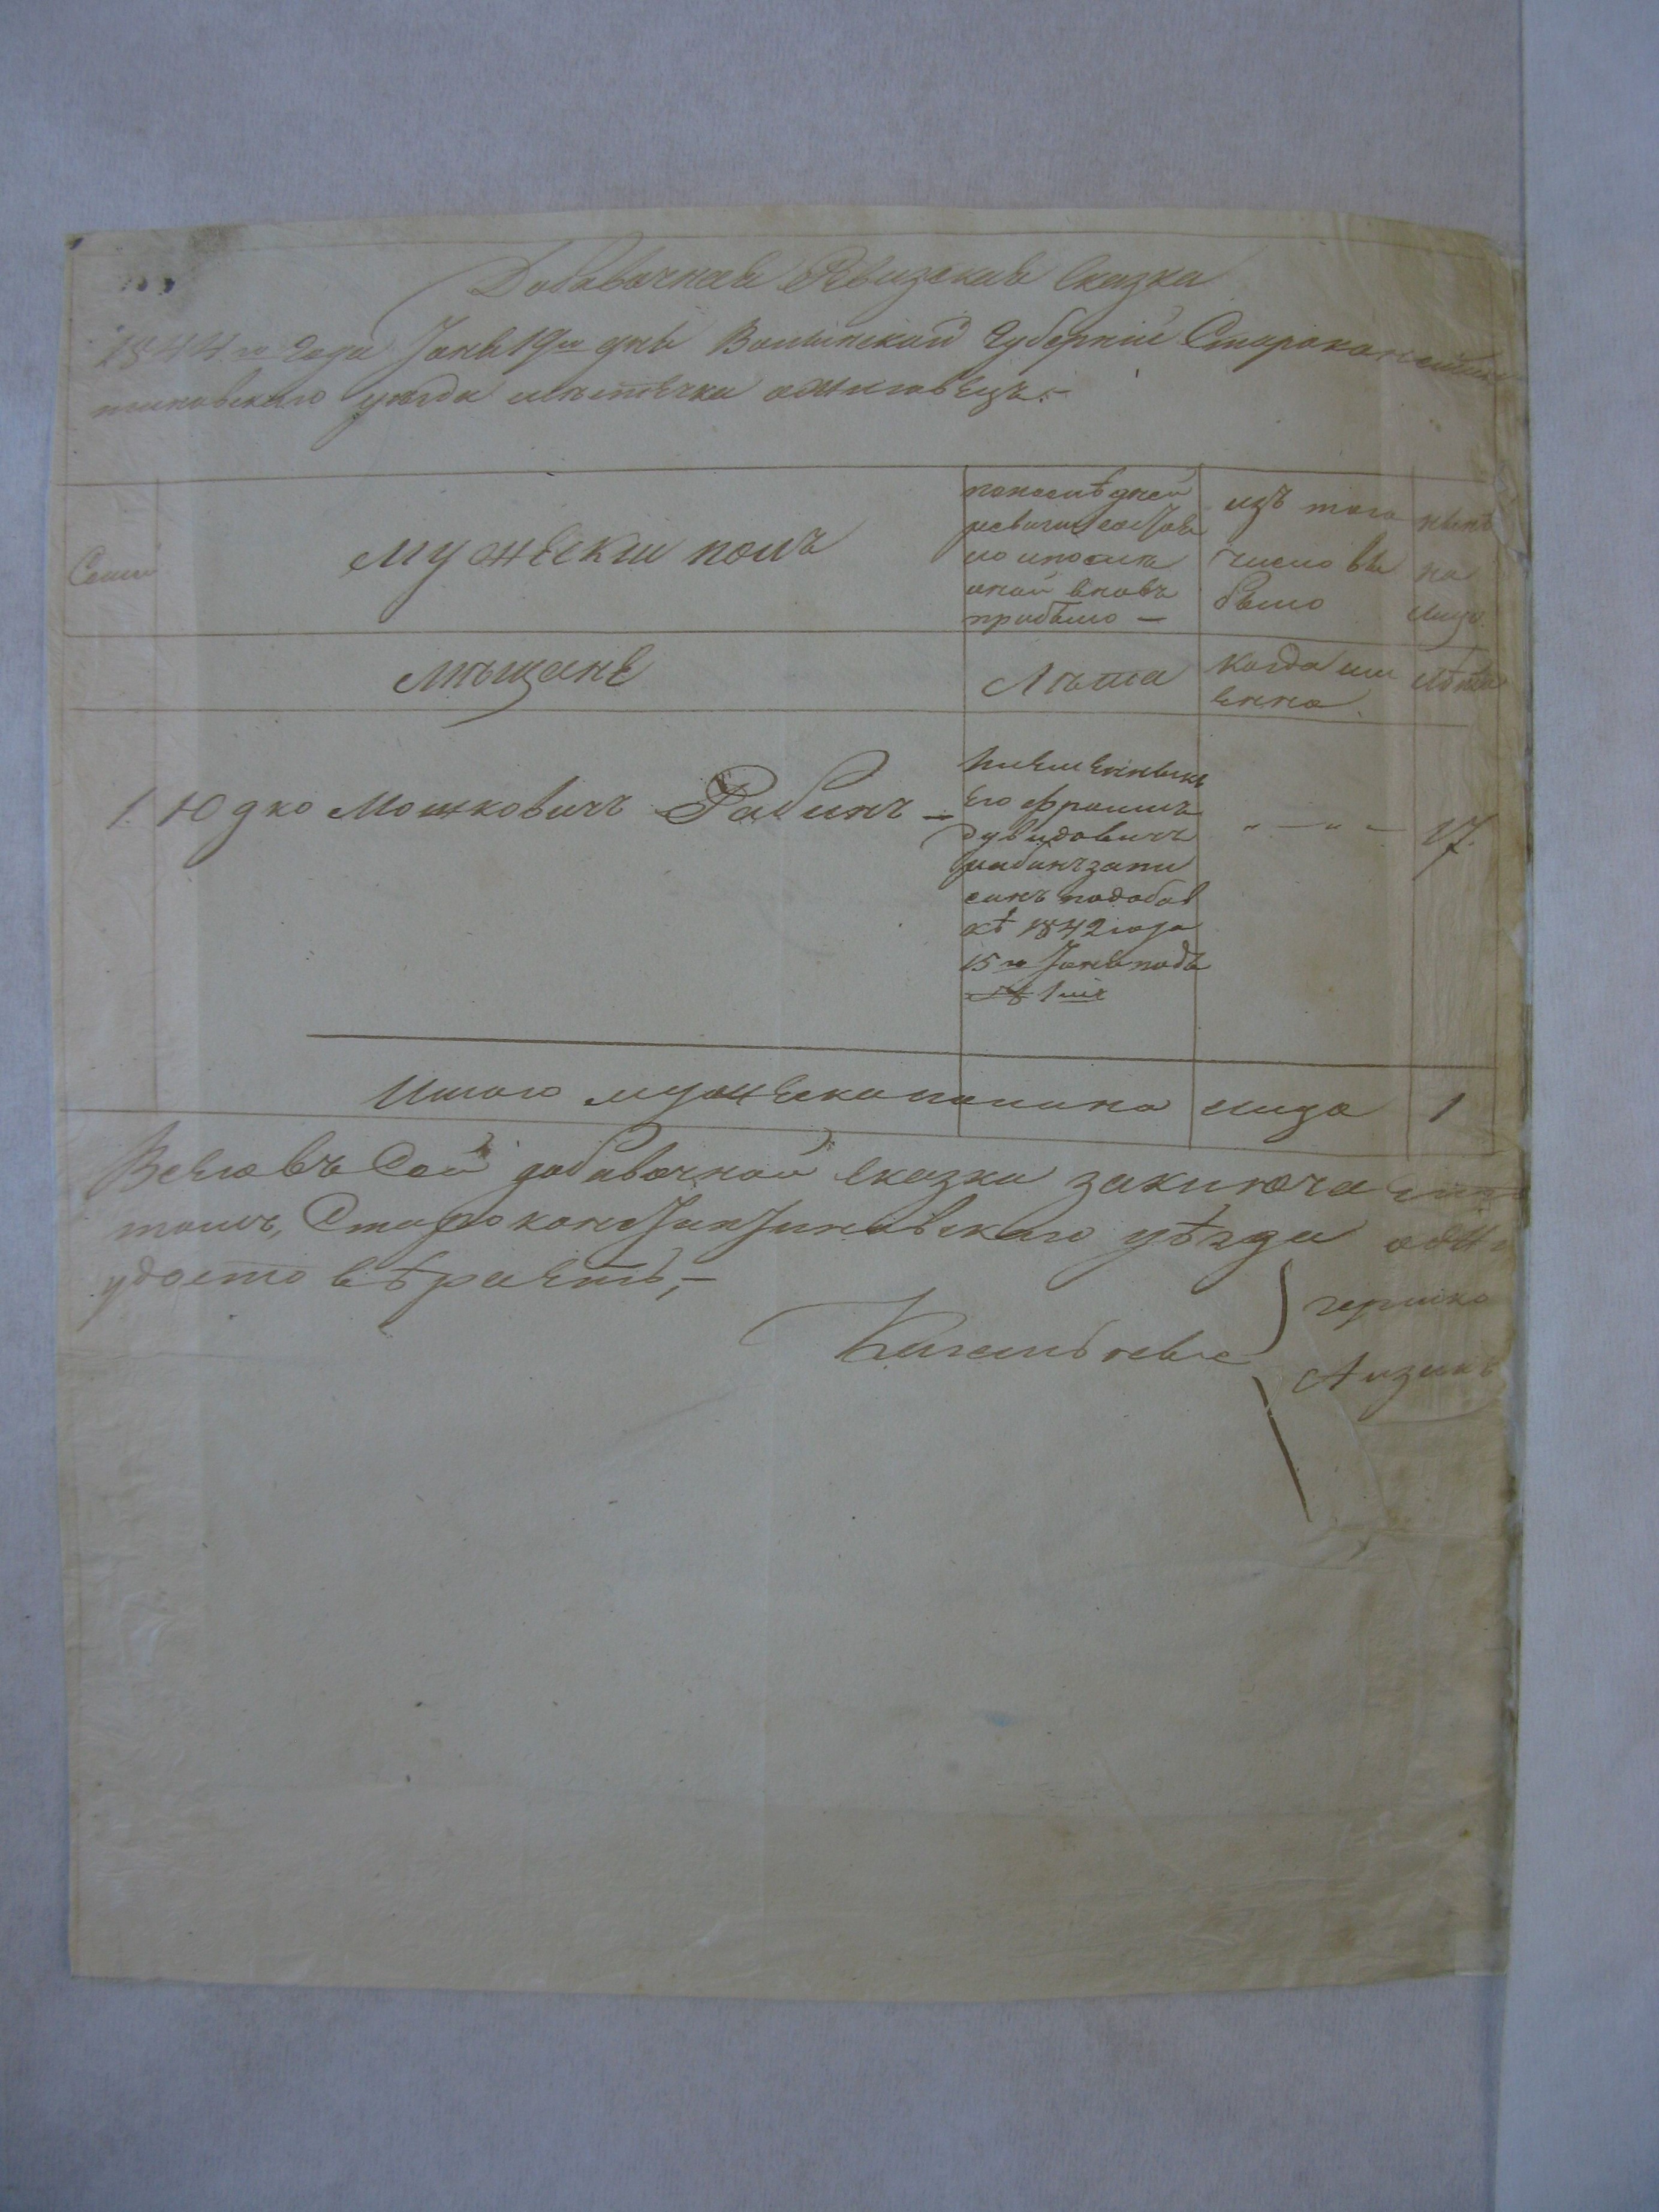 Добавочная Ревизская Сказка
1844го года Іюня 19го дня Волынской Губерніи Староконстан
тиновскаго уезда мѣстечка Ожиговецъ.-
Семьи
мужескій полъ
по послѣдней
ревизіи состоя
ло и после
оной вновь
прибыло —
изъ того
числа вы
было
нынѣ
на
лицо
мѣщане
Лѣта
когда им
енно
Лѣта
1. Юдко Мошковичъ Рабинъ —
племенникъ
его Фроимъ
Дувидовичъ
рабинъ запи
санъ по добав
кѣ 1842 года
15го Іюня подъ
№ 1мъ
" — " —
17.
Итого мужеска пола на лицо 1
Всего въ Сей добавочной сказки заключа
томъ, Староконстантиновскаго уѣзда
удостовѣраетъ,-
Гершко
Аизикъ